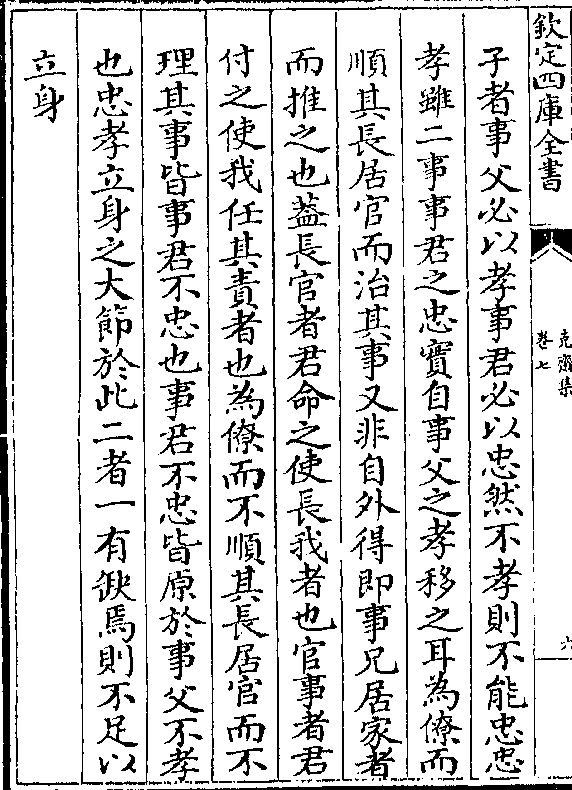 欽定四庫全書
克齋集
卷七
六
子者事父必以孝事君必以忠然不孝則不能忠忠
孝雖二事事君之忠實自事父之孝移之耳為僚而
順其長居官而治其事又非自外得即事兄居家者
而推之也葢長官者君命之使長我者也官事者君
付之使我任其責者也為僚而不順其長居官而不
理其事皆事君不忠也事君不忠皆原於事父不孝
也忠孝立身之大節於此二者一有缺焉則不足以
立身